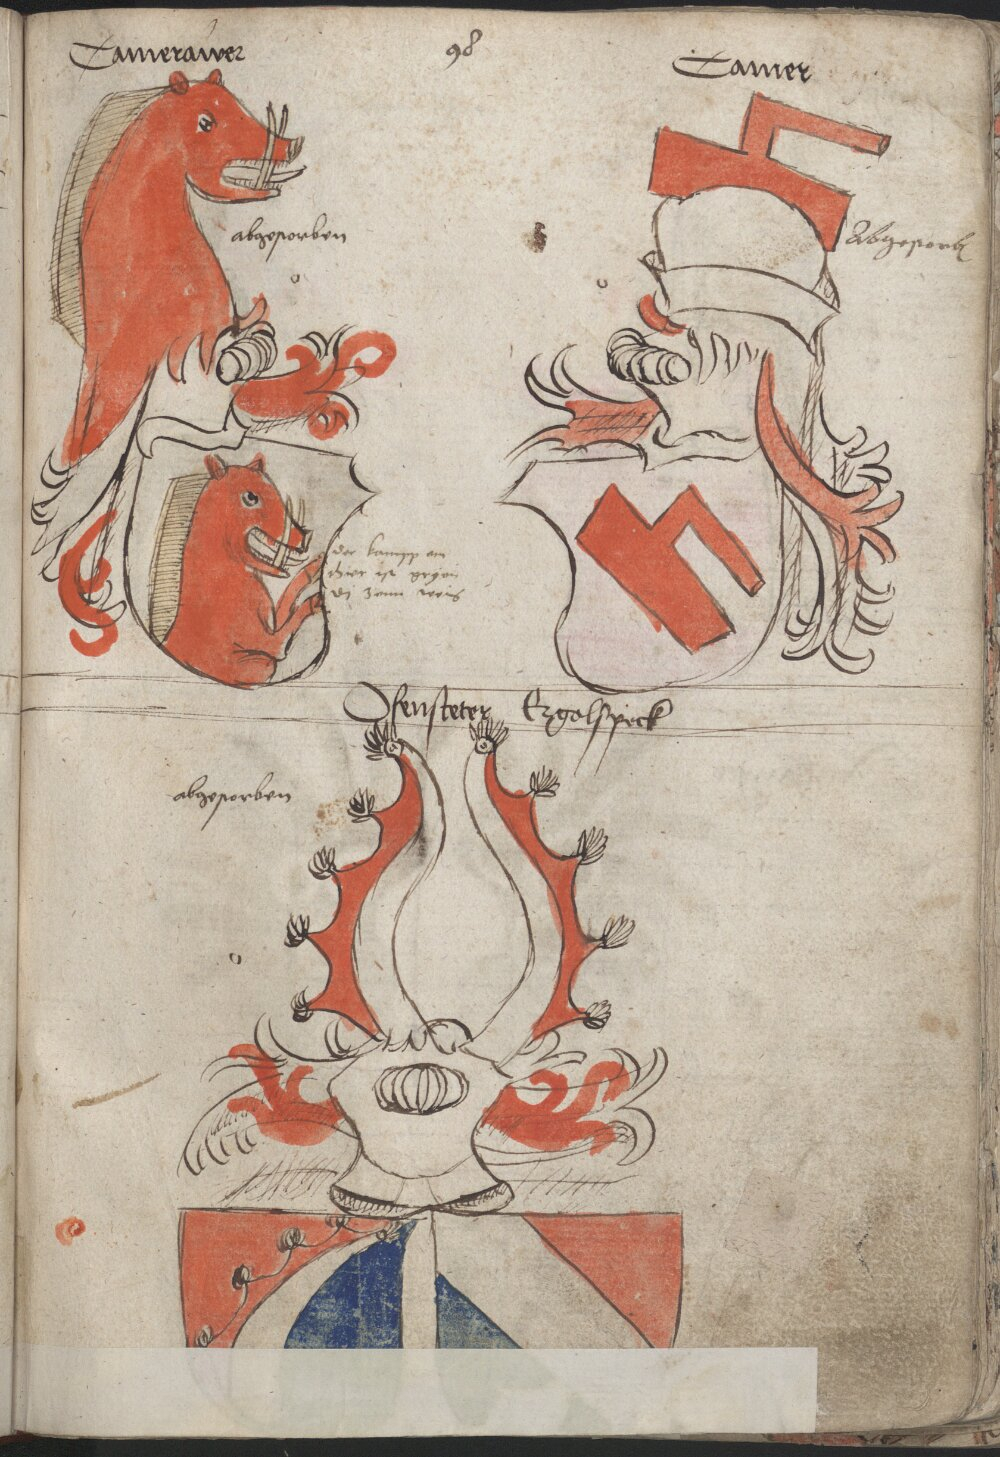 Camerawer
98
Camer
abgestorben
Abgestorb
der kamp am
thier ist gegen
di zenn weis
Ofensteter Ergolspeck
abgestorben